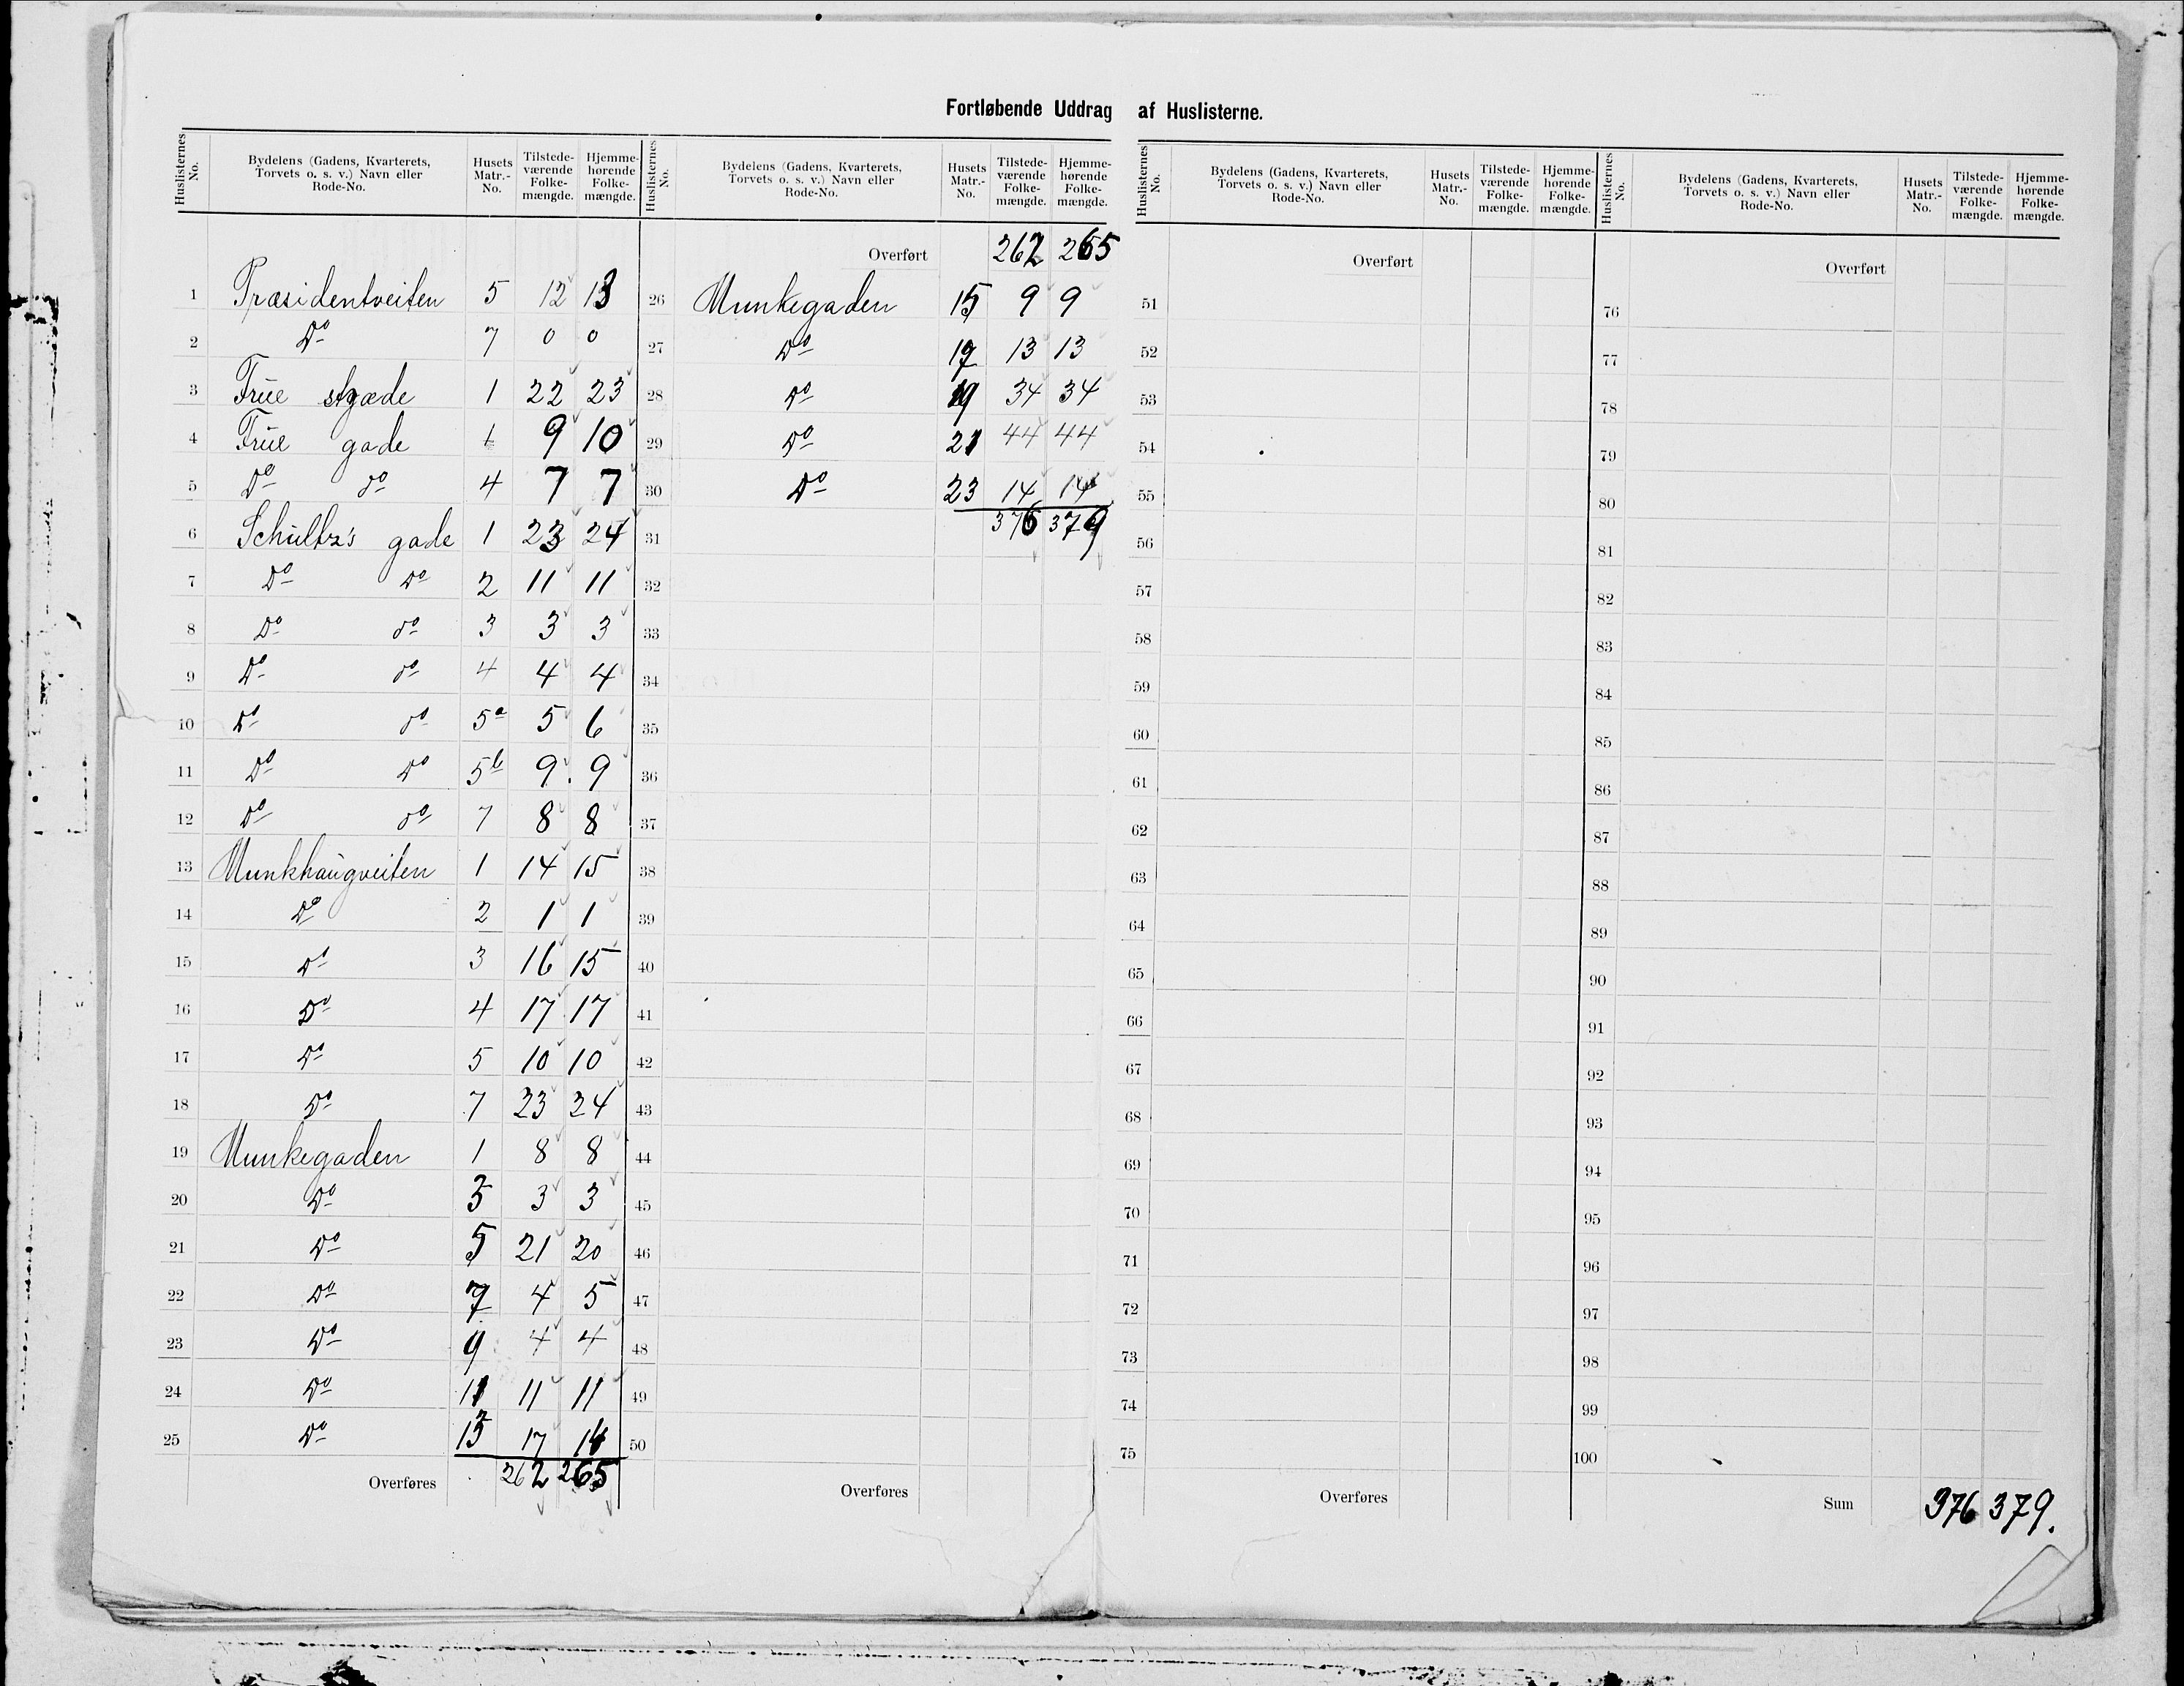 Fortløbende Uddrag af Huslisterne.
Huslisternes No. | Bydelens (Gadens, Kvarterets, Torvets o. s. v.) Navn eller Rode-No. | Husets Matr.-No. | Tilstedeværende Folkemængde. | Hjemmehørende Folkemængde.
1 Præsidentveiten 5 12 13
2 Do 7 0 0
3 Frue stræde 1 22 23
4 Frue gade 1 9 10
5 Do do 4 7 7
6 Schultz's gade 1 23 24
7 Do Do 2 11 11
8 Do do 3 3 3
9 Do do 4 4 4
10 Do do 5a 5 6
11 Do Do 5b 9 9
12 Do do 7 8 8
13 Munkhaugveiten 1 14 15
14 Do 2 1 1
15 Do 3 16 15
16 Do 4 17 17
17 Do 5 10 10
18 Do 7 23 24
19 Munkegaden 1 8 8
20 Do 3 3 3
21 Do 5 21 20
22 Do 7 4 5
23 Do 9 4 4
24 Do 11 11 11
25 Do 13 17 14
Overføres 262 265
Huslisternes No. | Bydelens (Gadens, Kvarterets, Torvets o. s. v.) Navn eller Rode-No. | Husets Matr.-No. | Tilstedeværende Folkemængde. | Hjemmehørende Folkemængde.
Overført 262 265
26 Munkegaden 15 9 9
27 Do 17 13 13
28 Do 19 34 34
29 Do 21 44 44
30 Do 23 14 14
31 376 379
32
33
34
35
36
37
38
39
40
41
42
43
44
45
46
47
48
49
50
Overføres
Huslisternes No. | Bydelens (Gadens, Kvarterets, Torvets o. s. v.) Navn eller Rode-No. | Husets Matr.-No. | Tilstedeværende Folkemængde. | Hjemmehørende Folkemængde.
Overført
51
52
53
54
55
56
57
58
59
60
61
62
63
64
65
66
67
68
69
70
71
72
73
74
75
Overføres
Huslisternes No. | Bydelens (Gadens, Kvarterets, Torvets o. s. v.) Navn eller Rode-No. | Husets Matr.-No. | Tilstedeværende Folkemængde. | Hjemmehørende Folkemængde.
Overført
76
77
78
79
80
81
82
83
84
85
86
87
88
89
90
91
92
93
94
95
96
97
98
99
100
Sum 376 379.